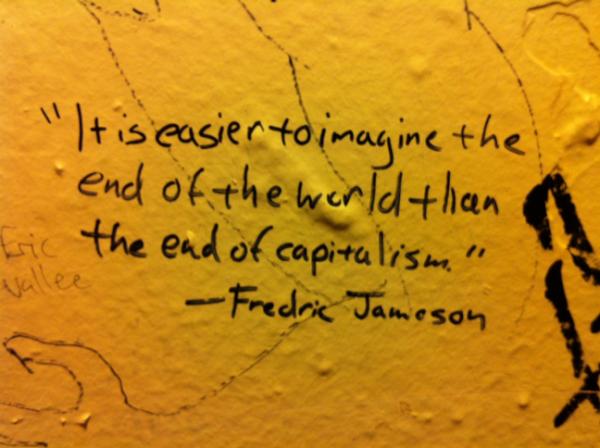 "It is easier to imagine the
end of the world than
the end of capitalism."
—Fredric Jameson
Eric
vallee